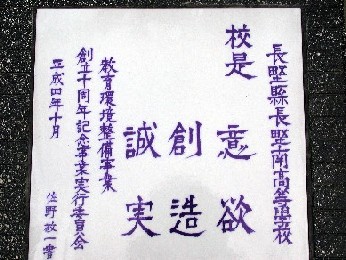 長野縣長野南高等學校
校是
意欲
創造
誠実
教育環境整備事業
創立十周年記念事業実行委員会
平成四年十月
佐野敬一書